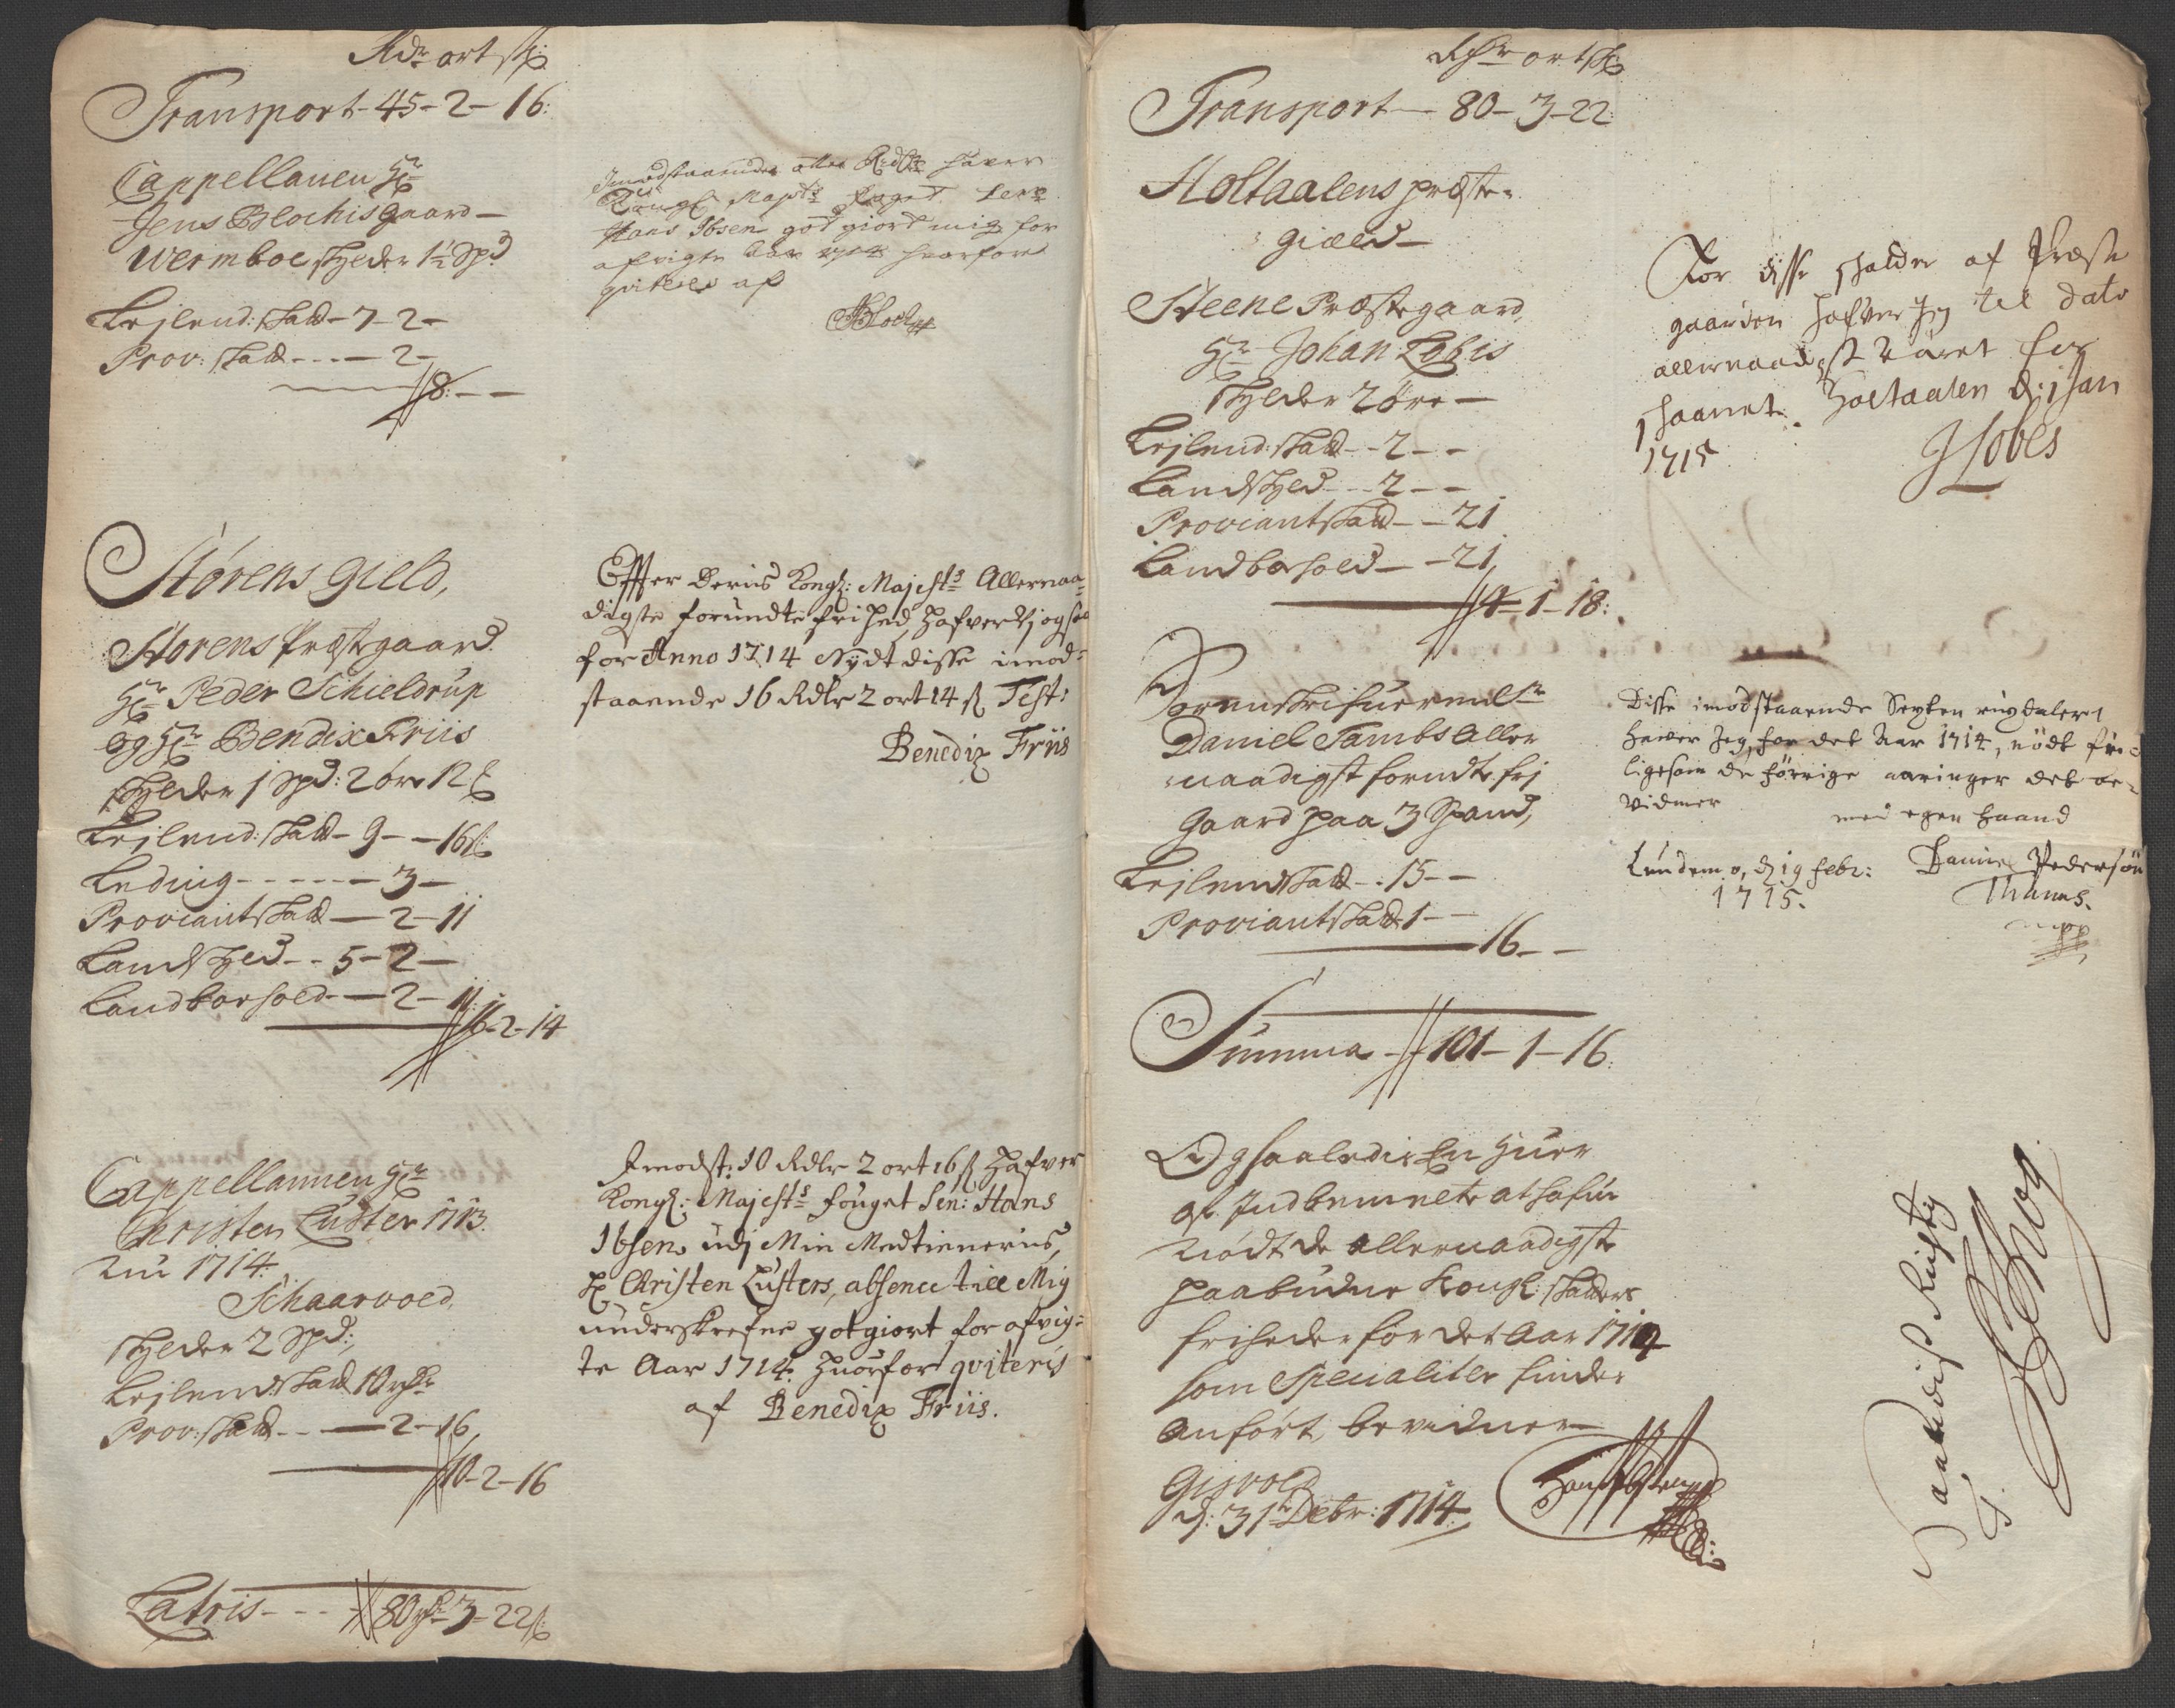 Rdr ort ß
Transport - 45 - 2 - 16:
Cappellanen Hr
Jens Blochis gaard -
Wermboe skylder 1½ Spd
Lejlend: skatt - 7 - 2 -
Prov: skatt - - - - 2 -
8: - -
Imodstaaende otte Rdlr hawer
Kongl Mayts foget Senr
Hans Ibsen godgiort mig for
afvigte Aar 1714 hvorfore
qviteres af
JBloch
Størens gield,
Størens Præstegaard
Hr Peder Schieldrup
og Hr Bendix Friis
skylder 1 Spd: 2 øre 12 ß
Lejlend: skatt - 9 - - 16 ß:
Leding - - - - - - 3 -
Proviantskatt - 2 - 11
Landskyld - - 5 - 2 -
Landborhold - - 2 - 11:
16 - 2 - 14
Effter Deris Kongl: Majests Allernaa-
digste forundte friHed Hafver Vj ogsaa
for Anno 1714 Nydt disse imod-
staaende 16 Rdlr 2 ort 14 ß Test:
Benedix Friis
Cappellannen Hr
Christen Luster 1713.
Nu 1714:
Schaarvold,
skylder 2 Spd:,
Lejlendskatt 10 rdr
Prov: skatt - - - 2 - 16,
10 - 2 - 16
Imodst: 10 Rdlr 2 ort 16 ß Hafver
Kongl: Majests fouget Sen: Hans
Ibsen udj Min Medtieneris,
Hr Christen Lusters, absence till Mig
underskrefne gotgiort for afvig-
te Aar 1714: Huorfor qviteris
af Benedix Friis.
Latris - - - - 80 rdr 3 - 22 ß
Rdr ort ß
Transport - 80 - 3 - 22
Holtaalens præste-
gield -
Steene Præstegaard,
Hr Johan Lobis
skylder 2 øre -
Lejlend: skatt - - 2 - -
Landskyld - - - 2 - -
Proviantskatt - - 21
Landborhold - - 21,
4 - 1 - 18:
For disse skatter af Præste
gaarden Hafver Jeg til dato
allernaadigst været for
skaanet. Holtaalen d: 1 Jan
1715
JLobes
Sorenskrifueren Sr
Daniel Tambs Aller
naadigst forundte frj
gaard paa 3 Spand,
Lejlendskatt - - 15 - -
Proviantskatt 1 - -
16 - -
Disse imodstaaende Sexten rixdalere
hawer Jeg, for det Aar 1714, nødt frie
ligesom de forrige aaringer det be-
vidner
med egen haand
Lundemo, d 19 febr: Daniel Pedersøn
1715. Thams.
mpp
Summa - 101 - 1 - 16:
Ogsaaledis En Huer
af Indbemelte at hafue
Nødt de allernaadigste
paabudne Kongl: skatters
friheder for det Aar 1714
som Specialiter findes
anført, bevidner
Gisvold
d: 31te Debr: 1714,
Hans Ibsen